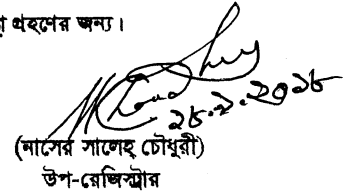 গ্রহণের জন্য।
১৮.২.২০১৮
(নাসের সালেহ চৌধুরী)
উপ-রেজিস্ট্রার